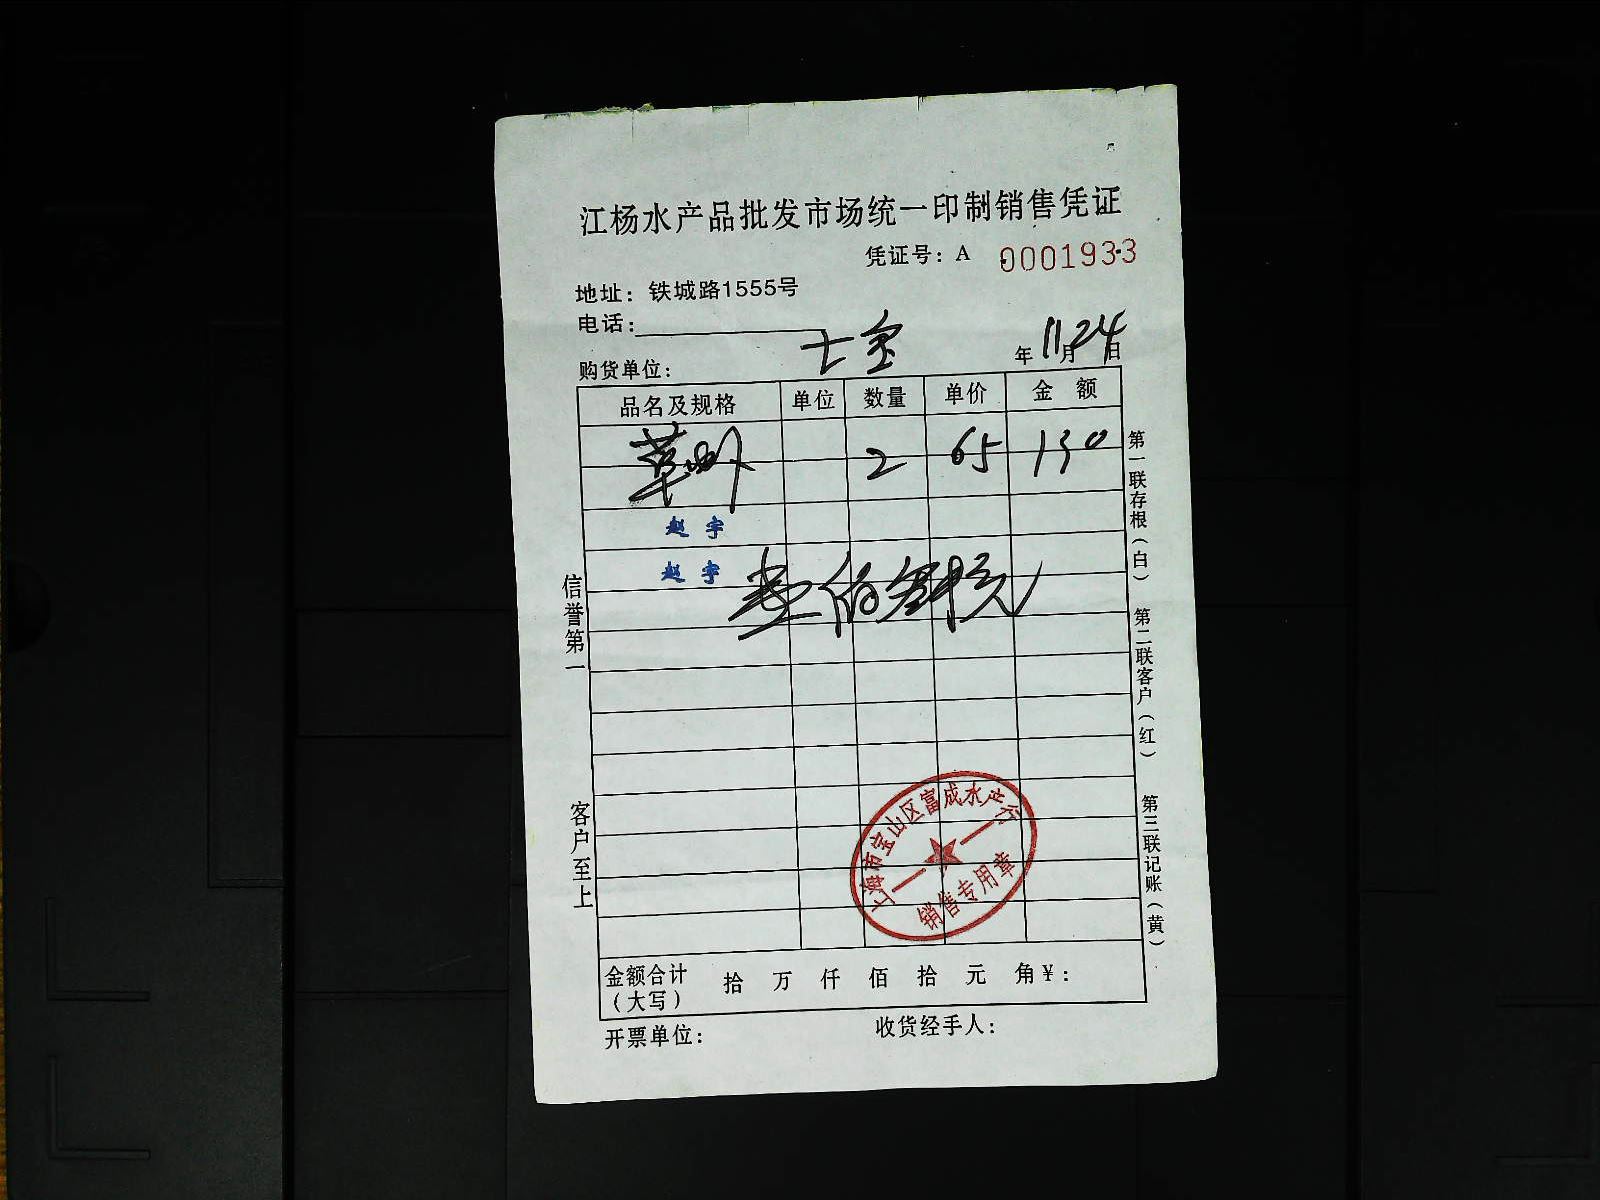 江杨水产品批发市场统一印制销售凭证
凭证号：A 0001933
地址：铁城路1555号
电话：
购货单位： 七宝 年 11月24日
品名及规格 单位 数量 单价 金额
草 2 65 130
赵宇
赵宇
壹佰叁拾元
信誉第一
客户至上
第一联存根（白）
第二联客户（红）
第三联记账（黄）
上海市宝山区富成水产行
销售专用章
金额合计（大写） 拾 万 仟 佰 拾 元 角￥：
开票单位： 收货经手人：